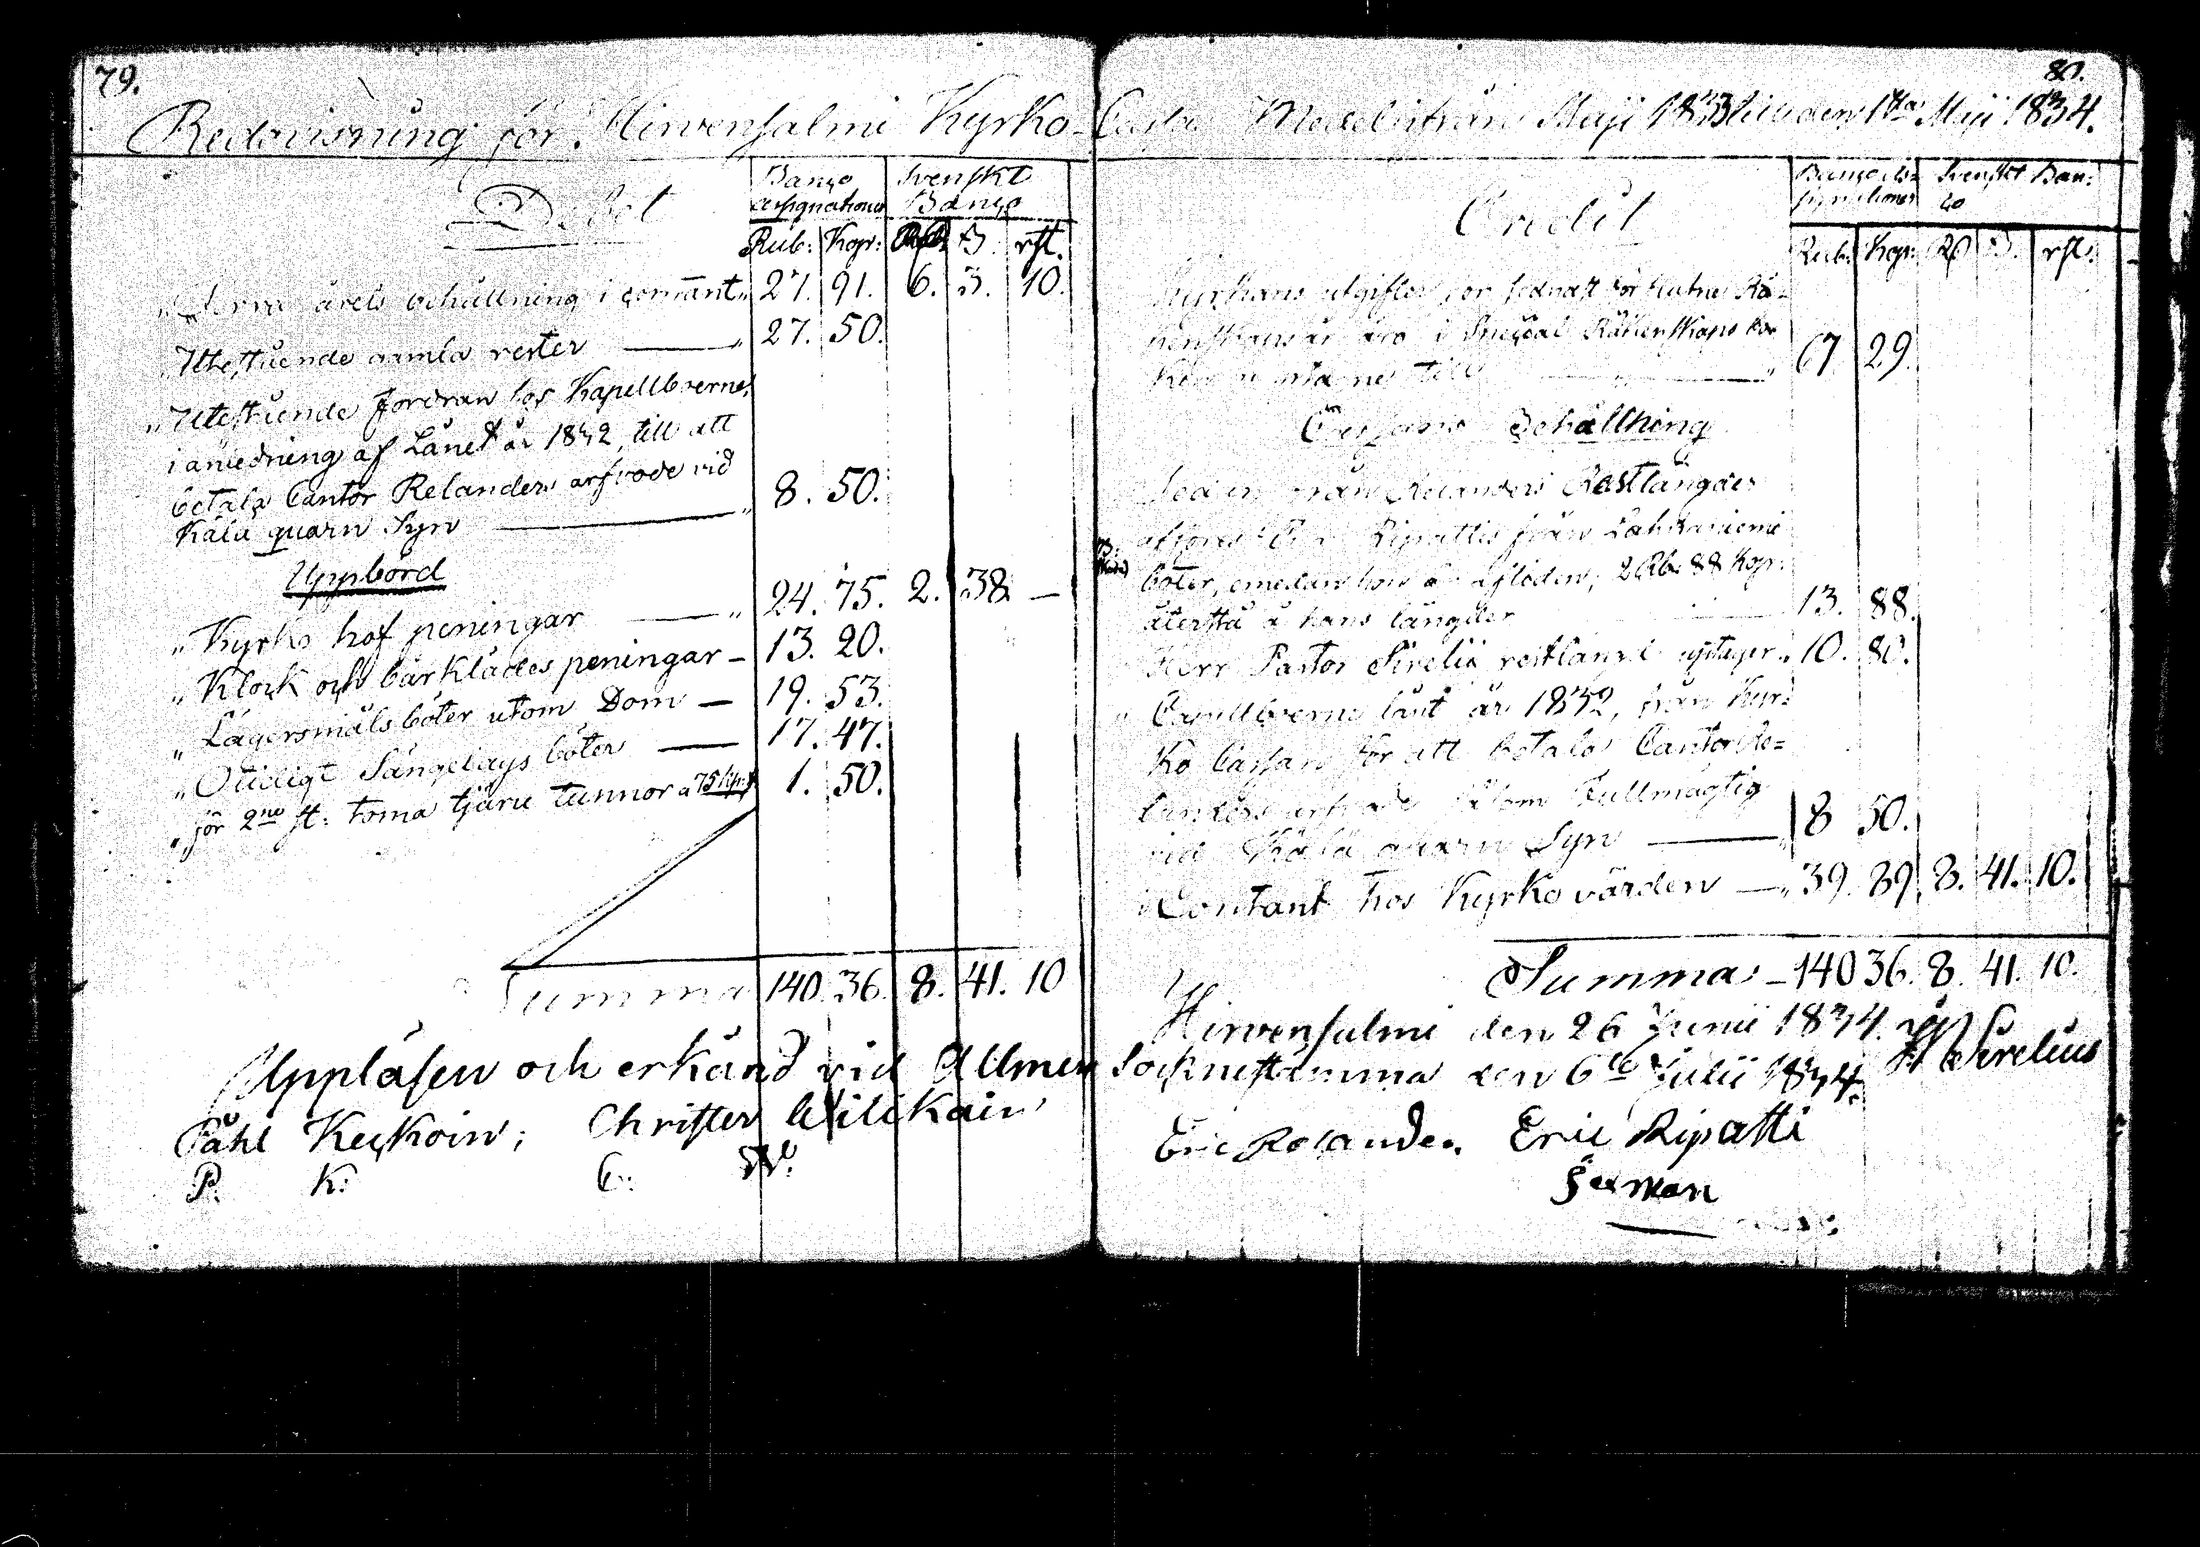 79.
Redovisning för Hirvensalmi Kyrko
Debet
Banco Assignationer
Svenskt Banco
Rub: Kop: Rd. ß. rst.
" Förra årets behållning i contant " 27. 91. 6. 3. 10.
" Utestående gamla rester — " 27. 50.
" Utestående fordran hos Kapellboerne,
i anledning af Lånet år 1832, till att
betala Cantor Relanders arfvode vid
Kälä quarn Syn — " 8. 50.
Uppbörd
" Kyrko haf peningar — " 24. 75. 2. 38. —
" Klock och bårklädes peningar — 13. 20.
" Lägersmåls böter utom Dom — 19. 53.
" Otidigt Sängelags böter — 17. 47.
" för 2ne st: toma tjäru tunnor a 75 kop: 1. 50.
Summa 140. 36. 8. 41. 10
Uppläsen och erkänd vid Allmen
Påhl Keckoin; Christer Wilikain
P. K: C: W:
80.
Cassa Medel ifrån Maji 1833 till den 1sta Maji 1834.
Credit
Banco As-signationer
Svenskt Ban:co
Rub: Kop: Rd ß. rst:
Kyrkans utgifter för sednast förflutne Rä-
kenskaps år äro i Special Räkenskaps
till — " 67 29.
Cassans Behållning
Sedan från Relanders Restlängder
afföras Ripattis från Lahdenniemi
böter, emedan hon är afliden, 2 Rb. 88 Kop:
återstå å hans längder 13. 88.
Herr Pastor Sirelii restlängd upptager " 10. 80.
" Capellboerne lånt år 1832, från Kyr-
ko Cassan för att betala Cantor Re=
landers arfvode såsom Fullmägtig
vid Kälä quarn Syn — 8 50.
Contant hos Kyrkovärden — " 39. 89. 8. 41. 10.
Summa — 140 36. 8. 41. 10.
Hirvensalmi den 26 Junii 1834.
Sirelius
Socknestämma den 6te Julii 1834.
Eric Relander. Eric Ripatti